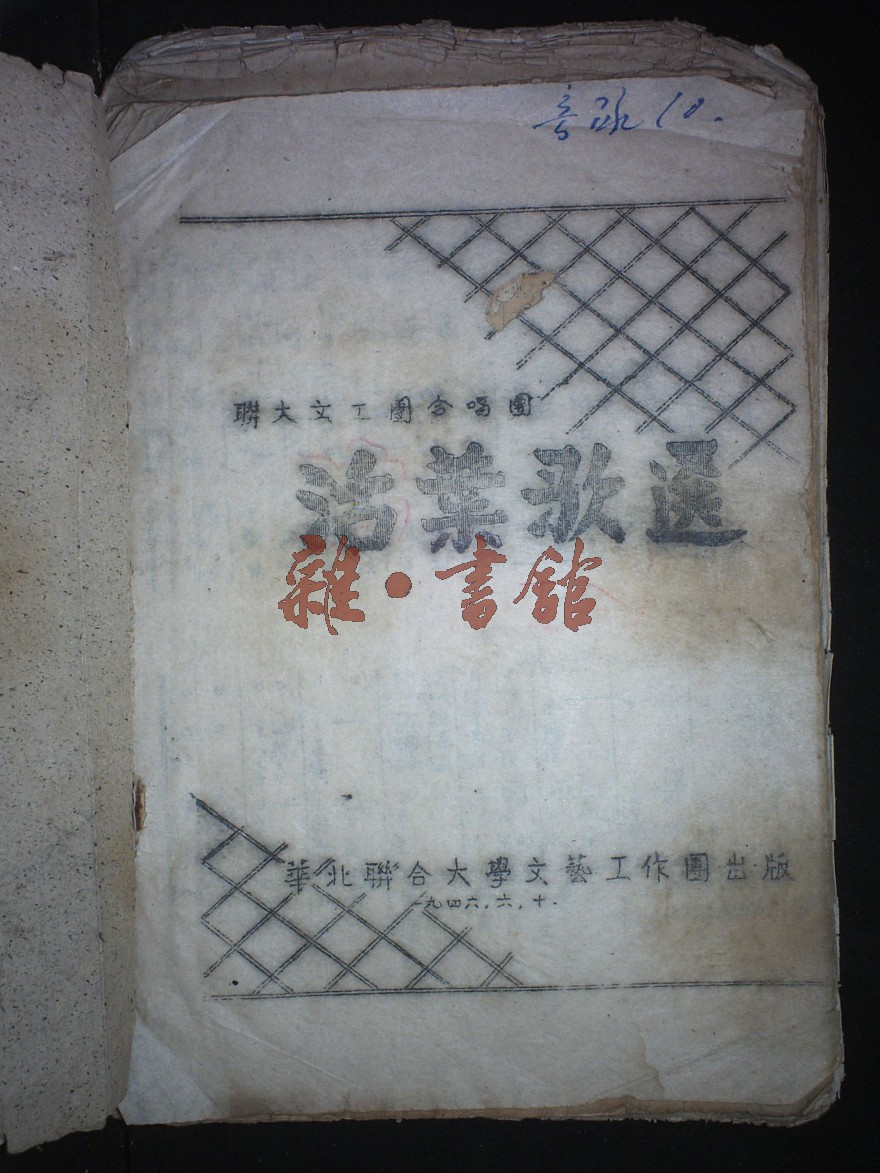 音 10.
聯大文工團合唱團
活葉歌選
雜·書舘
華北聯合大學文藝工作團出版
一九四六.六.十.